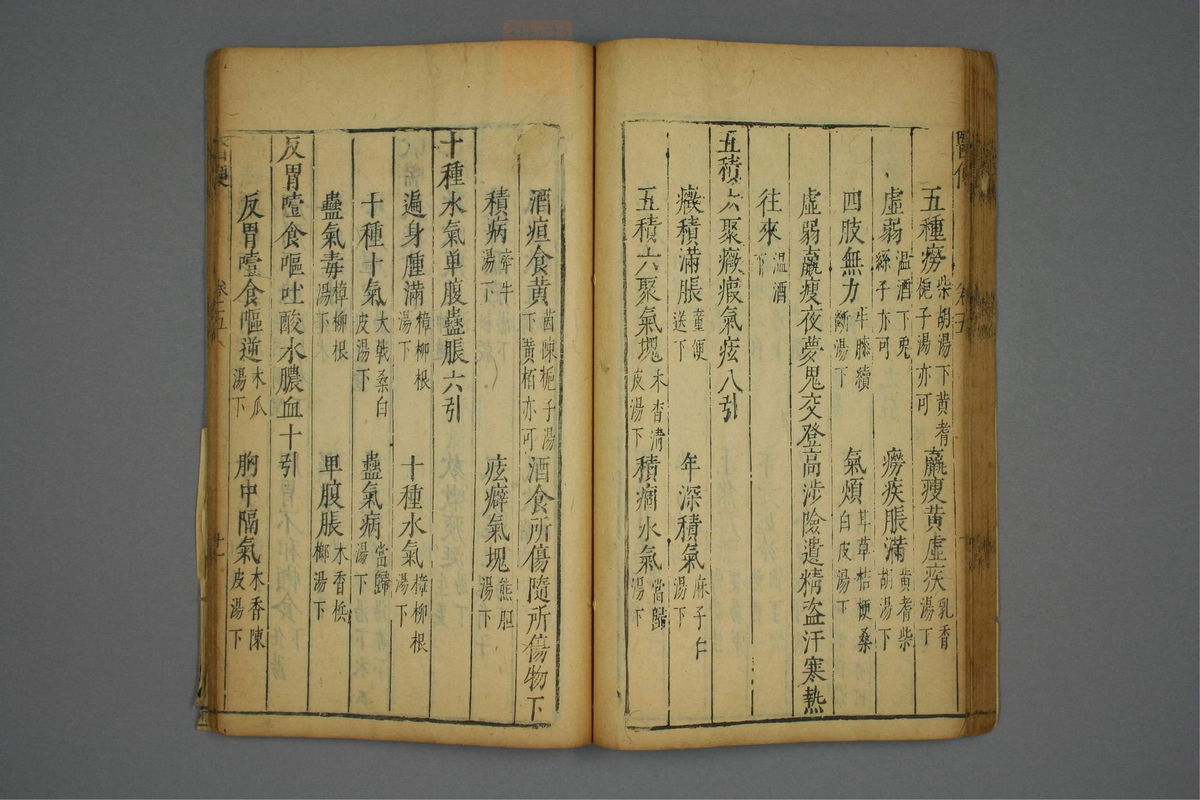 五種癆柴胡湯下黄耆梔子湯亦可羸瘦黄虛疾乳香湯丁
虛弱温酒下兎絲子亦可癆疾脹滿黄耆柴胡湯下
四肢無力牛膝續斷湯下氣煩甘草桔梗桑白皮湯下
虛弱羸瘦夜夢鬼交登高涉險遺精盗汗寒熱
往來温酒下
五積六聚癥瘕氣痃八引
癥積滿脹童便送下年深積氣麻子仁湯下
五積六聚氣塊木香清皮湯下積滴水氣當歸湯下
酒疸食黄茵陳梔子湯下黄栢亦可酒食所傷隨所傷物下
積病牽牛湯下痃癖氣塊熊胆湯下
十種水氣单腹蠱脹六引
遍身腫滿樟柳根湯下十種水氣樟柳根湯下
十種十氣大戟桑白皮湯下蠱氣病當歸湯下
蠱氣毒樟柳根湯下単腹脹木香梹榔湯下
反胃噎食嘔吐酸水膿血十引
反胃噎食嘔逆木瓜湯下胸中隔氣木香陳皮湯下
卷五